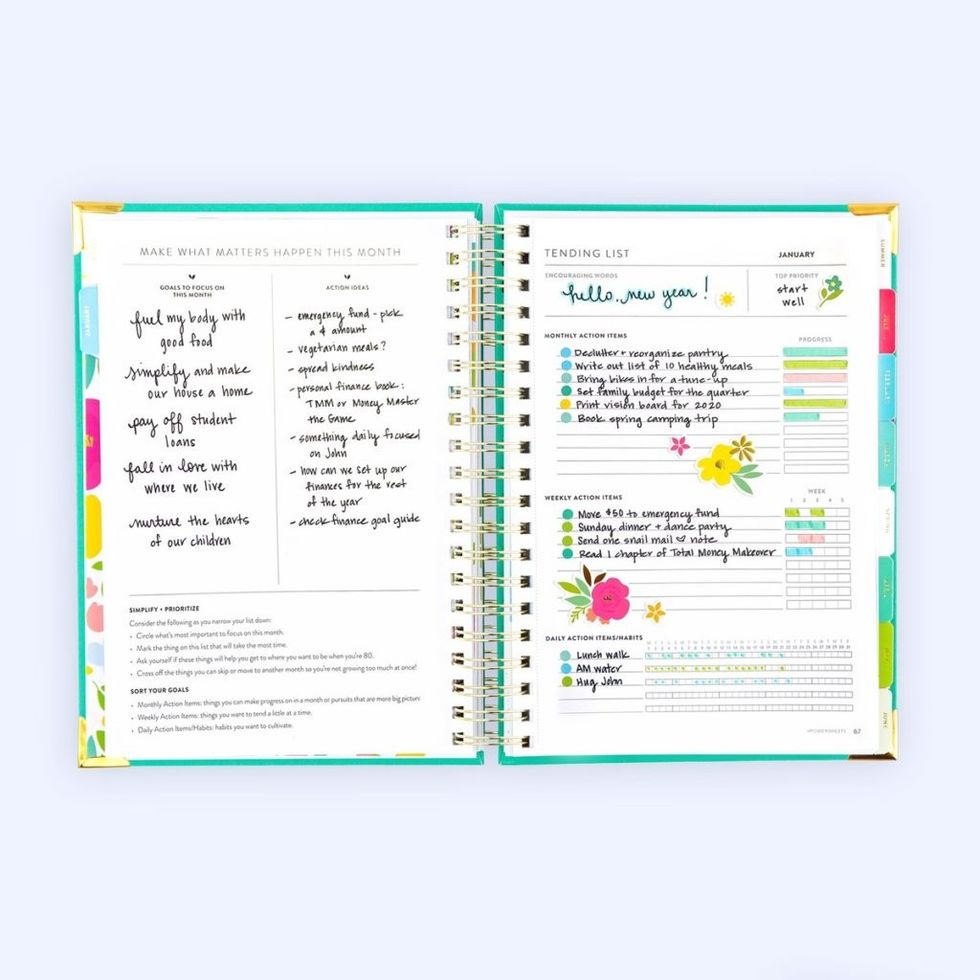 MAKE WHAT MATTERS HAPPEN THIS MONTH
GOALS TO FOCUS ON
THIS MONTH
fuel my body with
good food
simplify and make
our house a home
pay off student
loans
fall in love with
where we live
nurture the hearts
of our children
ACTION IDEAS
- emergency fund - pick
a $ amount
- vegetarian meals?
- spread kindness
- personal finance book:
TMM or Money Master
the Game
- something daily focused
on John
- how can we set up our
finances for the rest
of the year
- check finance goal guide
SIMPLIFY + PRIORITIZE
Consider the following as you narrow your list down:
• Circle what's most important to focus on this month.
• Mark the thing on this list that will take the most time.
• Ask yourself if these things will help you get to where you want to be when you're 80.
• Cross off the things you can skip or move to another month so you're not growing too much at once!
SORT YOUR GOALS
• Monthly Action Items: things you can make progress on in a month or pursuits that are more big picture
• Weekly Action Items: things you want to tend a little at a time.
• Daily Action Items/Habits: habits you want to cultivate.
JANUARY
TENDING LIST
JANUARY
ENCOURAGING WORDS
hello, new year!
TOP PRIORITY
start
well
MONTHLY ACTION ITEMS
PROGRESS
Declutter + reorganize pantry
Write out list of 10 healthy meals
Bring bikes in for a tune-up
Set family budget for the quarter
Print vision board for 2020
Book spring camping trip
WEEKLY ACTION ITEMS
WEEK
1 2 3 4 5
Move $50 to emergency fund
Sunday dinner + dance party
Send one snail mail ♡ note
Read 1 chapter of Total Money Makeover
DAILY ACTION ITEMS/HABITS
Lunch walk
AM water
Hug John
#POWERSHEETS 67
SUMMER
JUNE